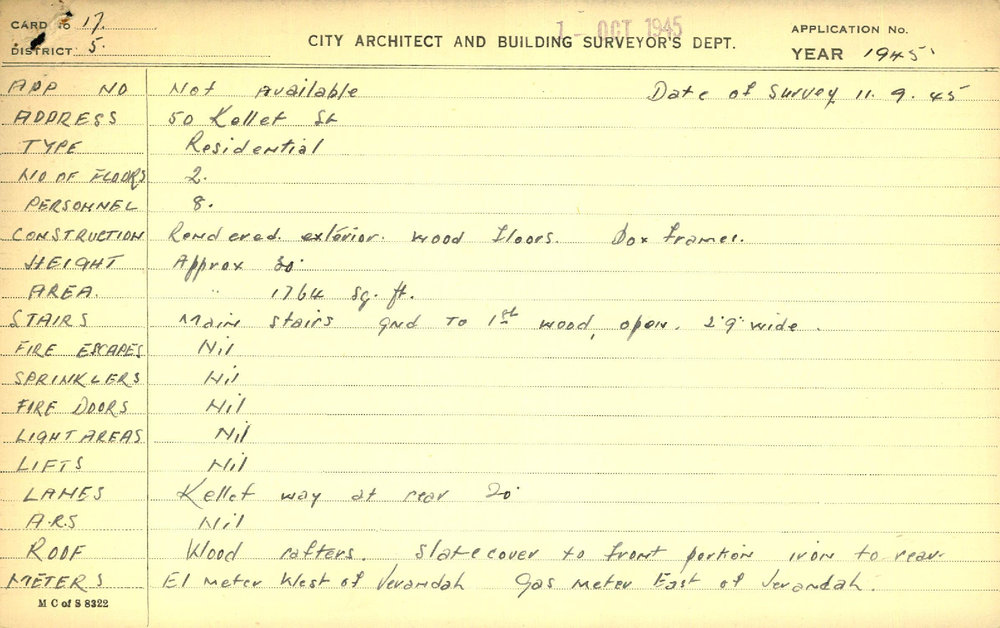 CARD No 17.
1 - OCT 1945
APPLICATION No.
DISTRICT 5.
CITY ARCHITECT AND BUILDING SURVEYOR'S DEPT.
YEAR 1945
APP NO Not available Date of Survey 11. 9. 45
ADDRESS 50 Kellet St
TYPE Residential
NO OF FLOORS 2.
PERSONNEL 8.
CONSTRUCTION Rendered exterior. Wood floors. Box frames.
HEIGHT Approx 30'
AREA. " 1764 sq. ft.
STAIRS Main stairs gnd to 1st wood, open. 2'9" wide.
FIRE ESCAPES Nil
SPRINKLERS Nil
FIRE DOORS Nil
LIGHT AREAS Nil
LIFTS Nil
LANES Kellet way at rear 20'
A.R.S Nil
ROOF Wood rafters. Slate cover to front portion iron to rear.
METERS El meter West of Verandah Gas meter East of Verandah.
M C of S 8322